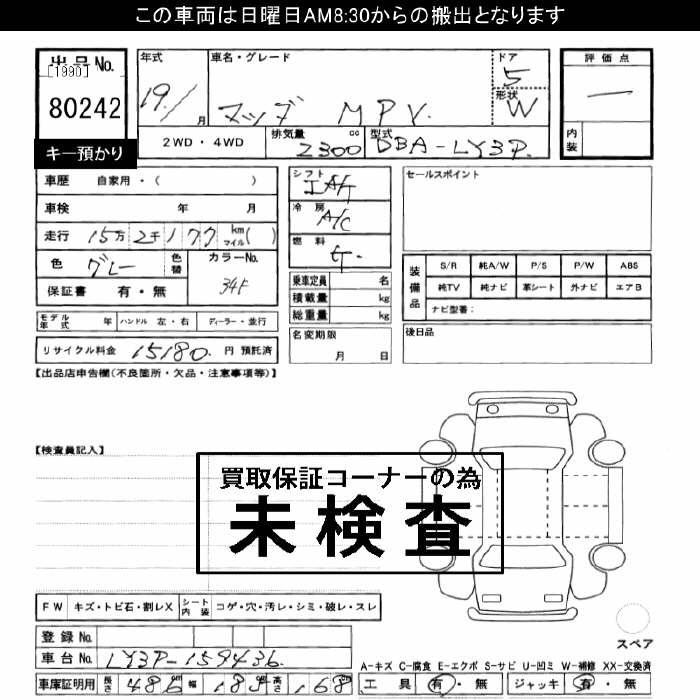 この車両は日曜日AM8:30からの搬出となります
出品No.
[1990]
80242
キー預かり
年式 19/1月
車名・グレード マツダ MPV.
ドア 5
形状 W
評価点
—
内装
2WD・4WD
排気量 2300 cc
型式 DBA-LY3P.
車歴 自家用・( )
車検 年 月
走行 15万 2千 177 km マイル( )
色 グレー 色替
カラーNo. 34F
保証書 有・無
シフト IAT
冷房 A/C
燃料 G.
乗車定員 名
積載量 kg
総重量 kg
セールスポイント
装備品
S/R 純A/W P/S P/W ABS
純TV 純ナビ 革シート 外ナビ エアB
ナビ型番:
モデル年式 年 ハンドル 左・右 ディーラー・並行
リサイクル料金 15180. 円 預託済
名変期限 月 日
後日品
【出品店申告欄(不良箇所・欠品・注意事項等)】
【検査員記入】
買取保証コーナーの為
未検査
FW キズ・トビ石・割レX シート内装 コゲ・穴・汚レ・シミ・破レ・スレ
スペア
登録No.
車台No. LY3P-159436
A-キズ C-腐食 E-エクボ S-サビ U-凹ミ W-補修 XX-交換済
車庫証明用 長さ 486 幅 185 高さ 168
工具 有・無 ジャッキ 有・無